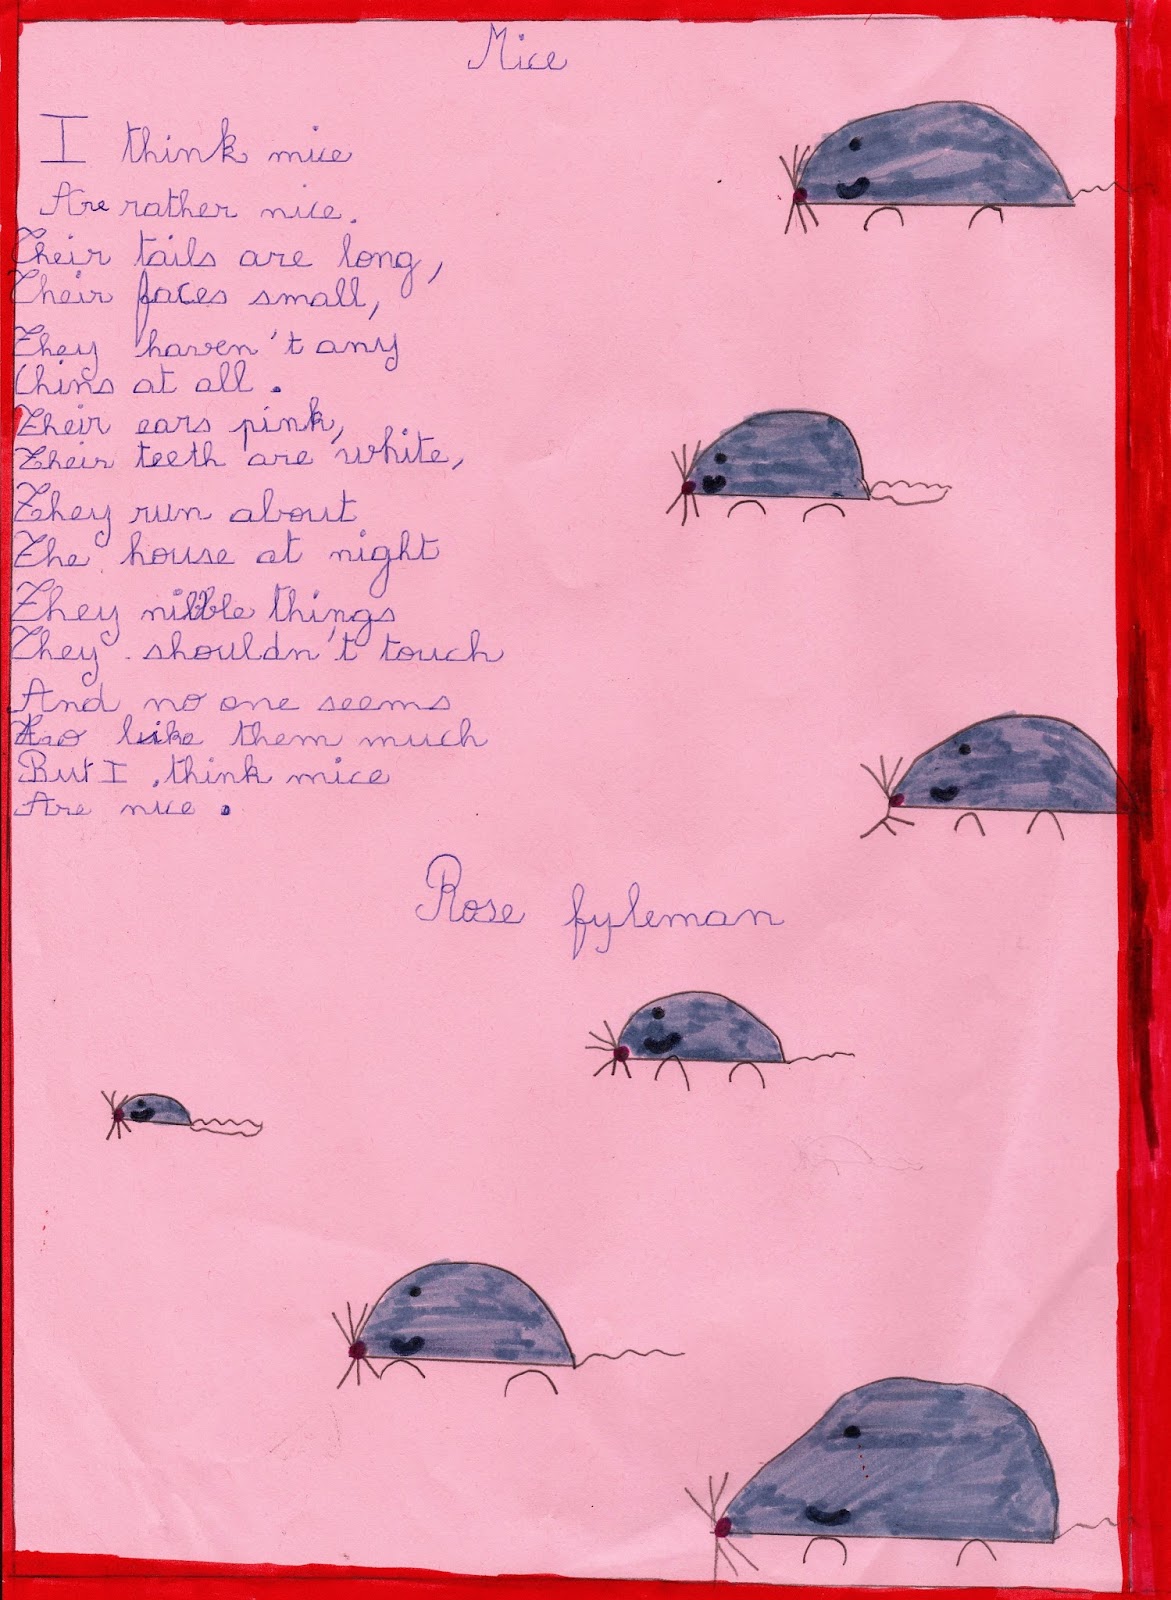 Mice
I think mice
Are rather nice.
Their tails are long,
Their faces small,
They haven't any
Chins at all.
Their ears pink,
Their teeth are white,
They run about
The house at night
They nibble things
They shouldn't touch
And no one seems
to like them much
But I think mice
Are nice.
Rose fyleman